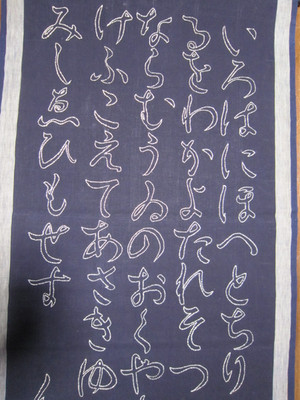 いろはにほへとちり
るをわかよたれそつ
ならむうゐのおくや
けふこえてあさきゆ
みしゑひもせす